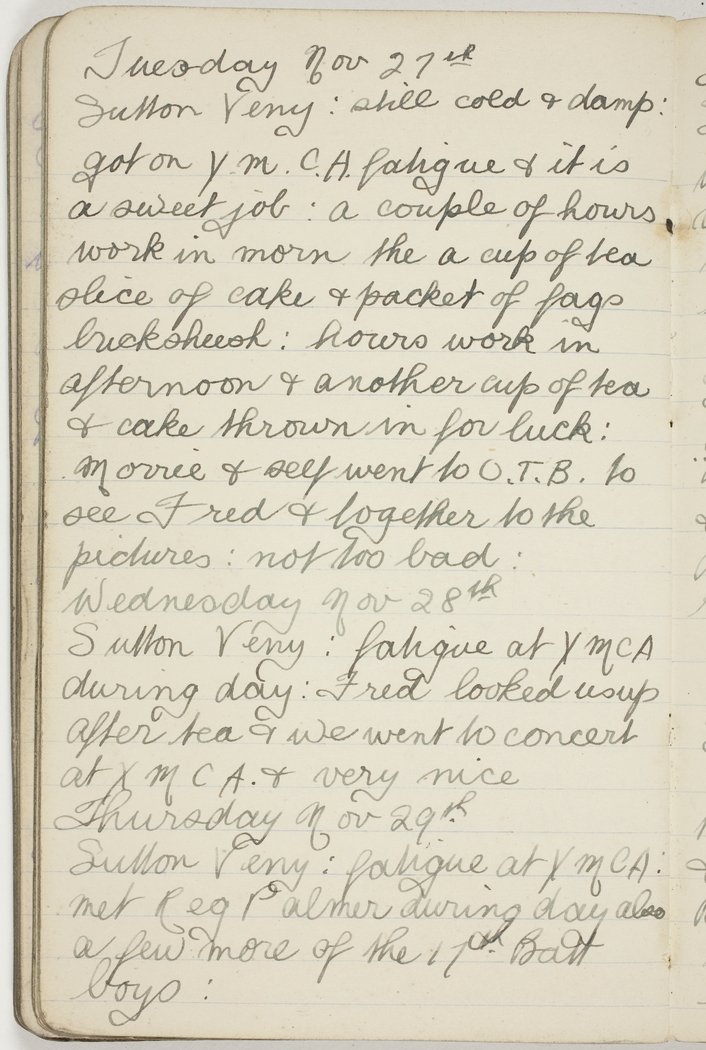 Tuesday Nov 27th
Sutton Veny : still cold & damp:
got on Y.M.C.A. fatigue & it is
a sweet job : a couple of hours
work in morn the a cup of tea
slice of cake & packet of fags
bucksheesh : hours work in
afternoon & another cup of tea
& cake thrown in for luck:
Morrie & self went to O.T.B. to
see Fred & together to the
pictures : not too bad :
Wednesday Nov 28th
Sutton Veny : fatigue at YMCA
during day : Fred looked us up
after tea & we went to concert
at Y M C A. & very nice
Thursday Nov 29th
Sutton Veny : fatigue at YMCA:
met Reg Palmer during day also
a few more of the 17th Batt
boys :